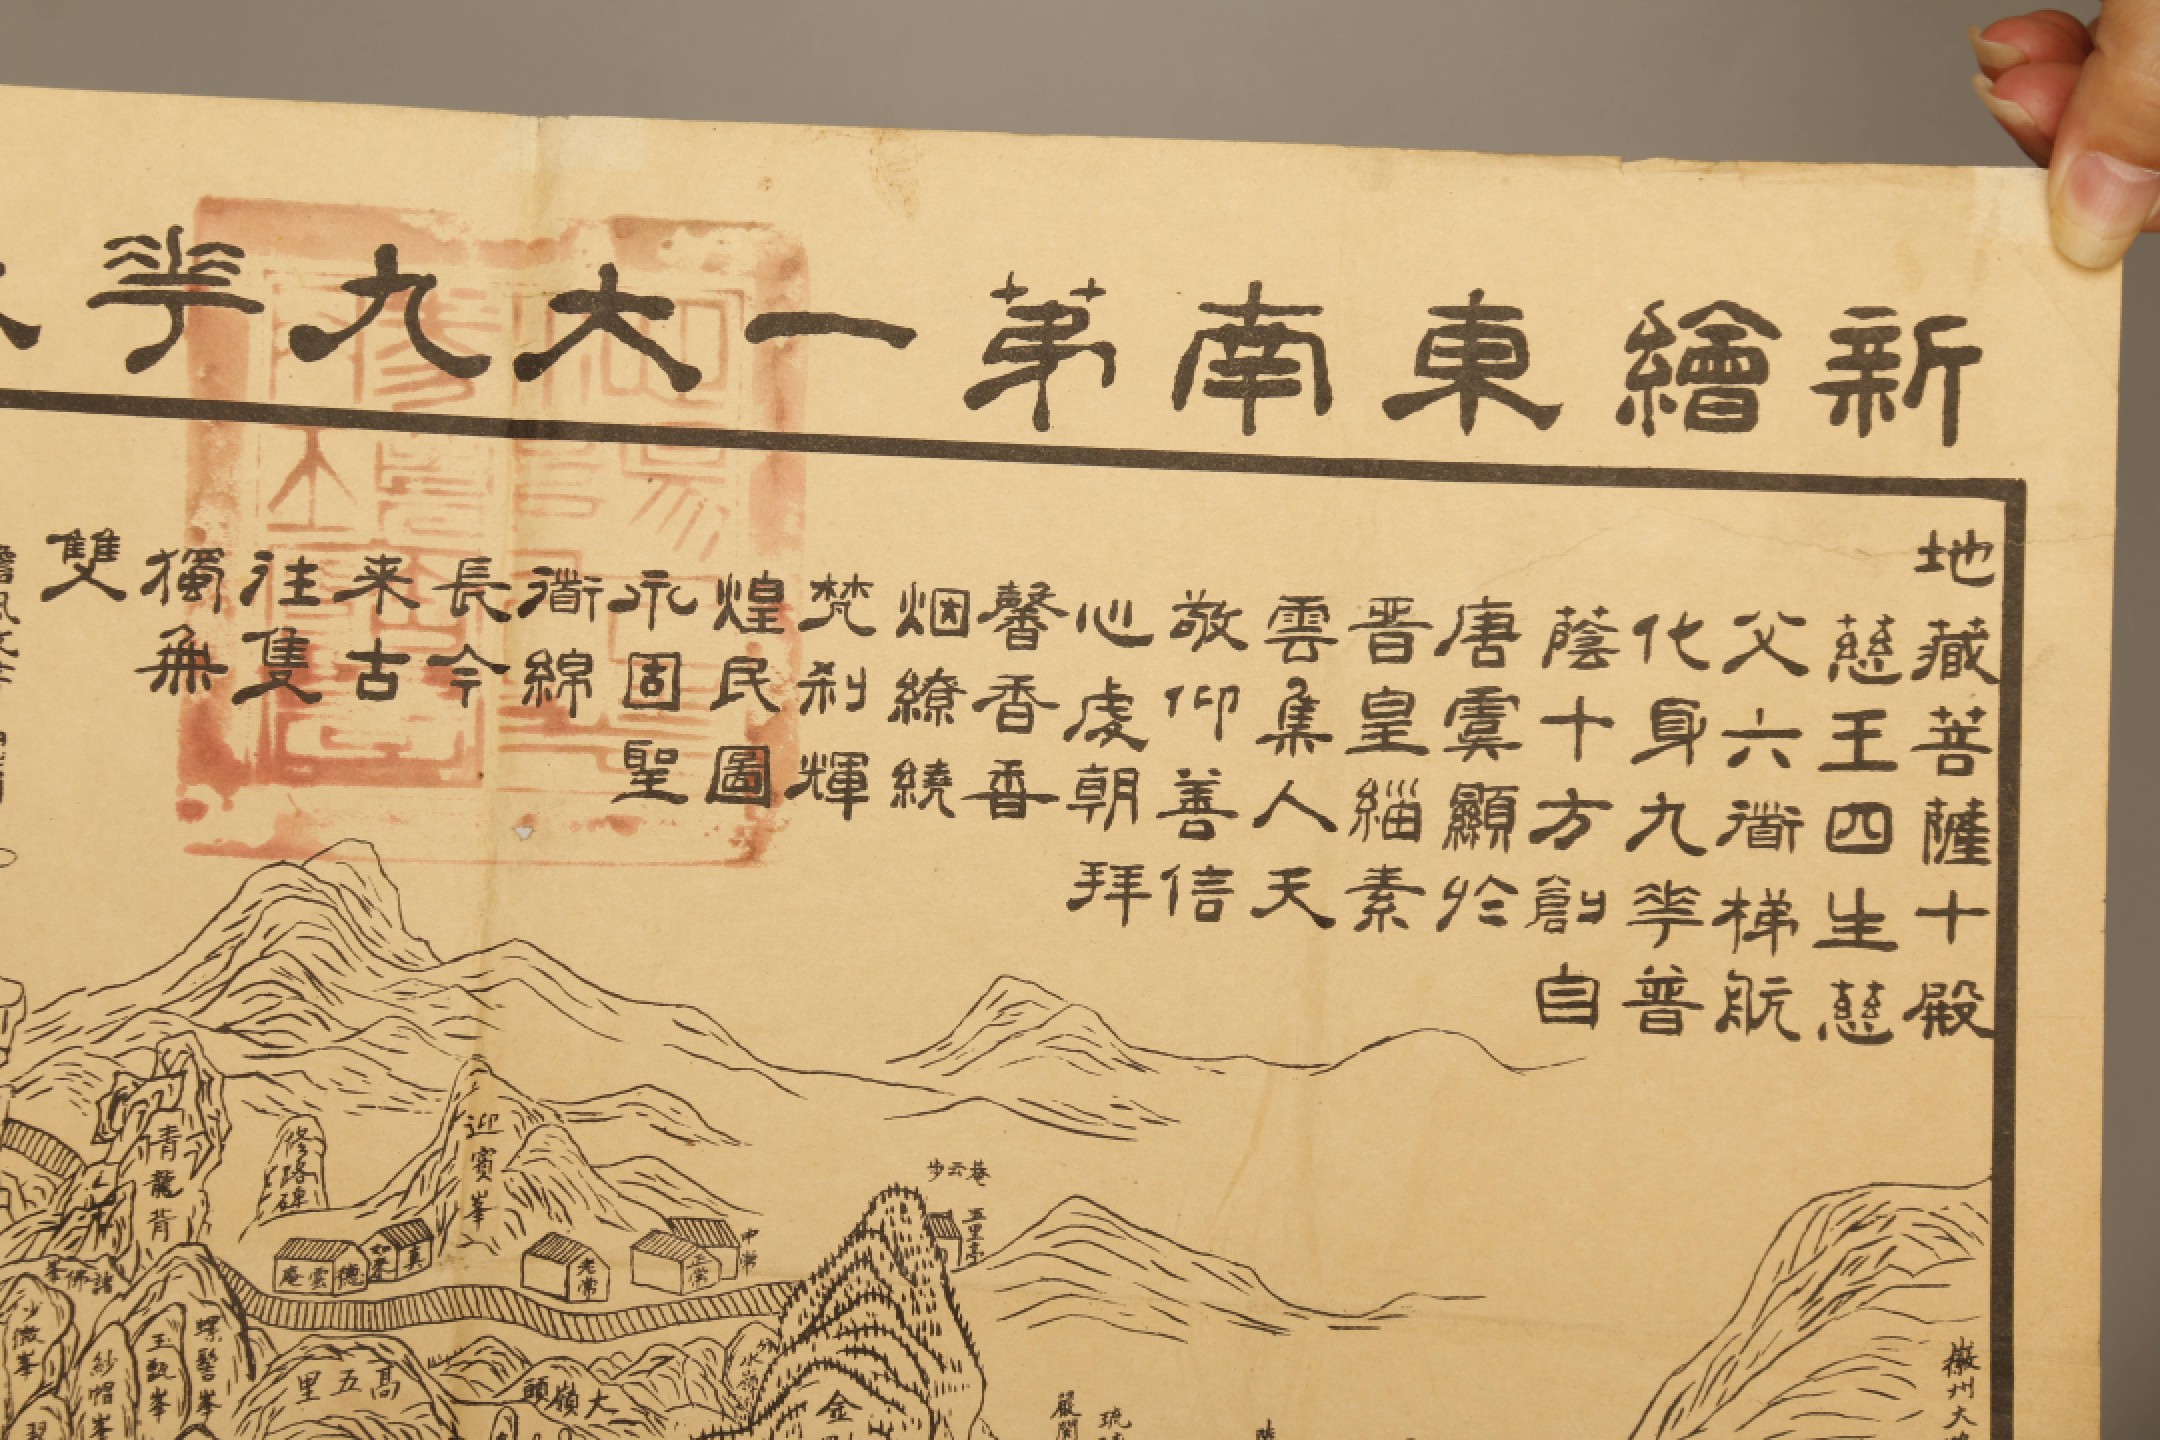 新繪東南苐一大九華
地藏菩薩十殿
慈王四生慈
父六衟梯航
化身九華普
蔭十方創自
唐虞顯於
晋皇緇素
雲集人天
敬仰善信
心虔朝拜
馨香香
烟繚繞
梵刹輝
煌民圖
永固聖
衟綿
長今
来古
往隻
獨無
雙
步云菴
五里亭
迎賓峯
修路碑
青龍背
中常
正常
老常
德雲庵
諸佛峯
徽州大
大嶺頭
高五里
螺髻峯
玉甑峯
紗帽峯
少微峯
金